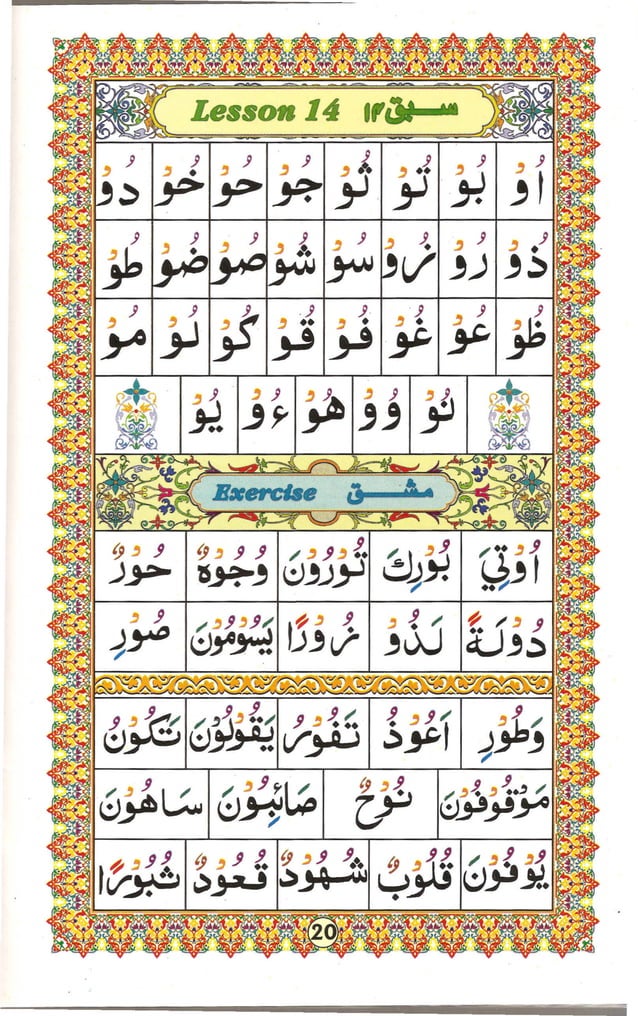 Lesson 14 سبق ۱۴
اُوْ بُوْ تُوْ ثُوْ جُوْ حُوْ خُوْ دُوْ
ذُوْ رُوْ زُوْ سُوْ شُوْ صُوْ ضُوْ طُوْ
ظُوْ عُوْ غُوْ فُوْ قُوْ كُوْ لُوْ مُوْ
نُوْ وُوْ هُوْ ءُوْ يُوْ
Exercise مشق
اُوْتِيَ بُوْرِكَ تُوْرُوْنَ وُجُوْهٌ حُوْرٌ
دُوْلَةً لَذُوْ زُوْرًا يَسُوْمُوْنَ صُوْرِ
وَطُوْرِ اَعُوْذُ تَفُوْرُ يَقُوْلُوْنَ تَكُوْنُ
مَوْقُوْفُوْنَ نُوْحٌ صَائِبُوْنَ سَاهُوْنَ
يُوْفُوْنَ قُلُوْبٌ شُهُوْدٌ قُعُوْدٌ ثُبُوْرًا
20